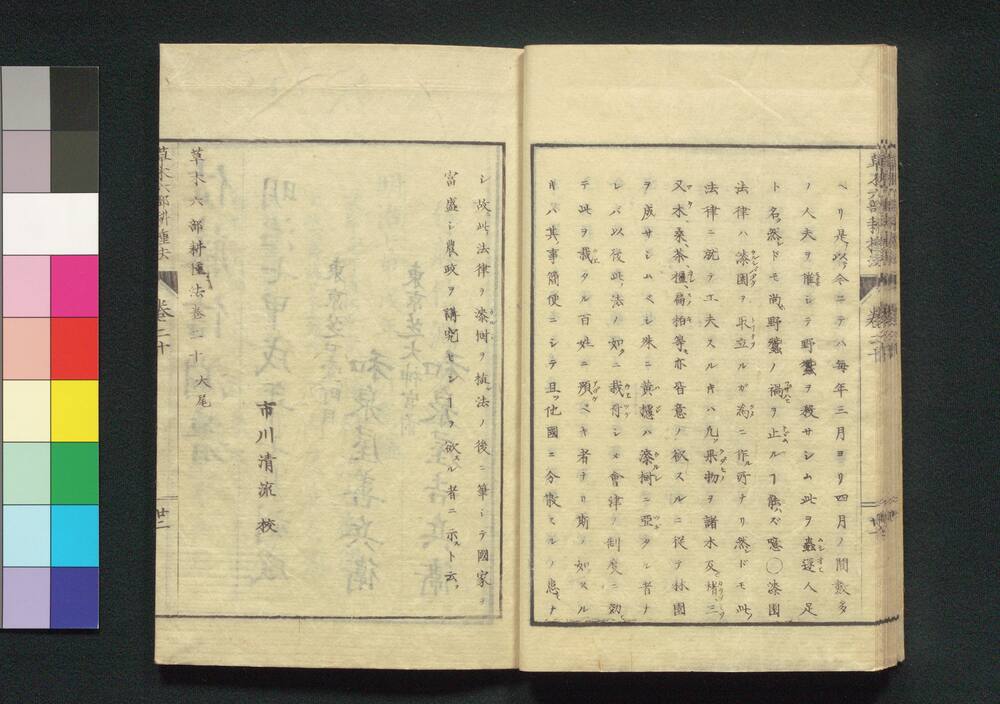 ヘリ是以今ニテハ毎年三月ヨリ四月ノ間數多
ノ人夫ヲ催シテ野蠶ヲ殺サシム此ヲ蟲逐人足
ト名ク然レドモ尚野蠶ノ禍ヲ止ルヿ能ハズ噫〇漆園
法律ハ漆園ヲ取立ルガ為ニ作ル所ナリ然レドモ此ノ
法律ニ就テ工夫スルキハ凡ソ果物ヲ諸木及ビ楮三
又木桑、茶、扁柏等モ亦皆意ノ欲スルニ從テ林園
ヲ成サシムベシ殊ニ黃櫨ハ漆樹ニ亞タル者ナ
レバ以後此ノ法ノ如ク栽母シメ會津ノ制度ニ効
テ此ヲ栽タル百姓ニ預クベキ者ナリ斯ノ如スル
キハ其ノ事簡便ニシテ且ツ他國ニ分散スルノ患ナ
シ故ニ此ノ法律ヲ漆樹ヲ植ル法ノ後ニ筆シテ國家ヲ
富盛シ農政ヲ講究センヿヲ欲スル者ニ示スト云フ
市川清流 校
草木六部耕種法卷二十 大尾
草木六部耕種法 卷二十 廿二